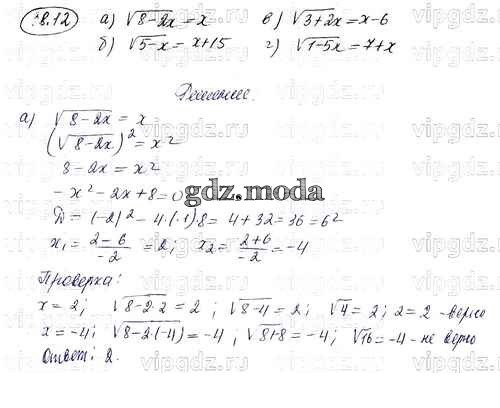 8.12 а) √8-2x = x в) √3+2x = x-6
б) √5-x = x+15 г) √1-5x = 7+x
Решение.
а) √8-2x = x
(√8-2x)² = x²
8-2x = x²
-x²-2x+8=0
D = (-2)² - 4·(-1)·8 = 4+32=36=6²
x₁ = (2-6)/(-2) = 2; x₂ = (2+6)/(-2) = -4
Проверка:
x = 2; √8-2·2 = 2; √8-4 = 2; √4 = 2; 2 = 2 - верно
x = -4; √8-2·(-4) = -4; √8+8 = -4; √16 = -4 - не верно
Ответ: 2.
gdz.moda
vipgdz.ru